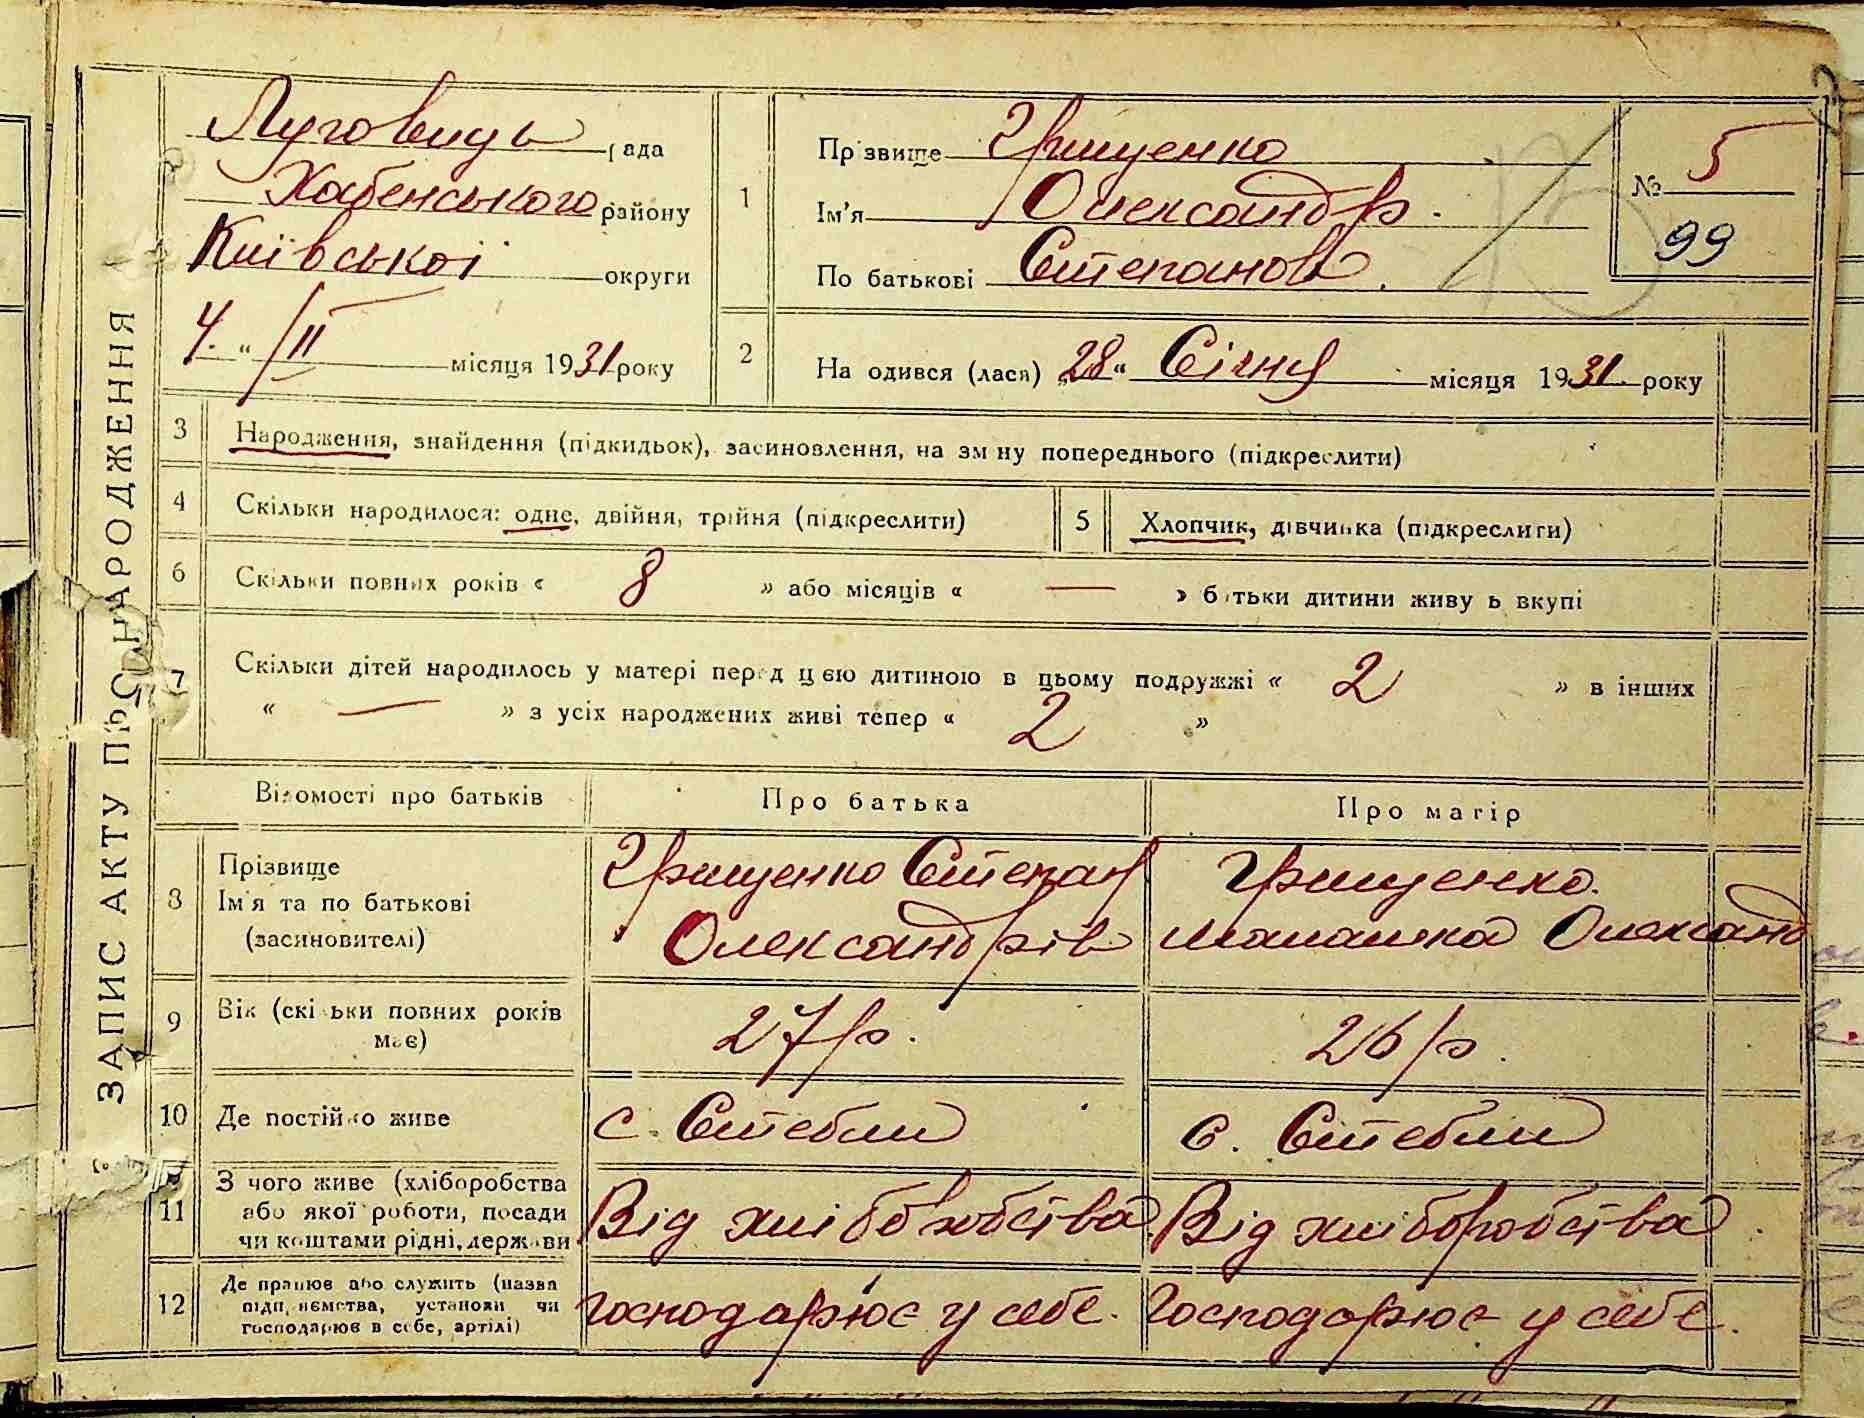 ЗАПИС АКТУ ПРО НАРОДЖЕННЯ
Луговицька рада
Хабенського району
Київської округи
4. " /II місяця 1931 року
1
Прізвище Грищенко
Ім'я Олександр.
По батькові Степанов.
№ 5
99
2
На одився (лася) „28" Січня місяця 1931. року
3 Народження, знайдення (підкидьок), засиновлення, на зміну попереднього (підкреслити)
4 Скільки народилося: одне, двійня, трійня (підкреслити)
5 Хлопчик, дівчинка (підкреслити)
6 Скільки повних років « 8 » або місяців « — » батьки дитини живуть вкупі
7 Скільки дітей народилось у матері перед цєю дитиною в цьому подружжі « 2 » в інших
« — » з усіх народжених живі тепер « 2 »
Відомості про батьків
Про батька
Про матір
8 Прізвище
Ім'я та по батькові
(засиновителі)
Грищенко Степан
Олександрів
Грищенко.
Олександ
9 Вік (скільки повних років
має)
27 р.
26 р.
10 Де постійно живе
с. Стебли
с. Стебли
11 З чого живе (хліборобства
або якої роботи, посади
чи коштами рідні, держави
Від хліборобства
Від хліборобства
12 Де працює або служить (назва
підприємства, установи чи
господарює в себе, артілі)
господарює у себе.
Господарює у себе.